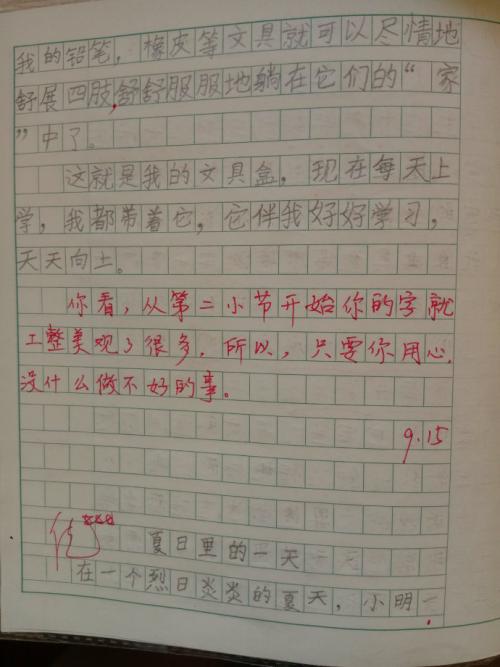 我的铅笔，橡皮等文具就可以尽情地
舒展四肢,舒舒服服地躺在它们的“家
”中了。
这就是我的文具盒，现在每天上
学，我都带着它，它伴我好好学习，
天天向上。
你看，从第二小节开始你的字就
工整美观了很多，所以，只要你用心，
没什么做不好的事。
9.15
优
夏日里的一天
在一个烈日炎炎的夏天，小明一